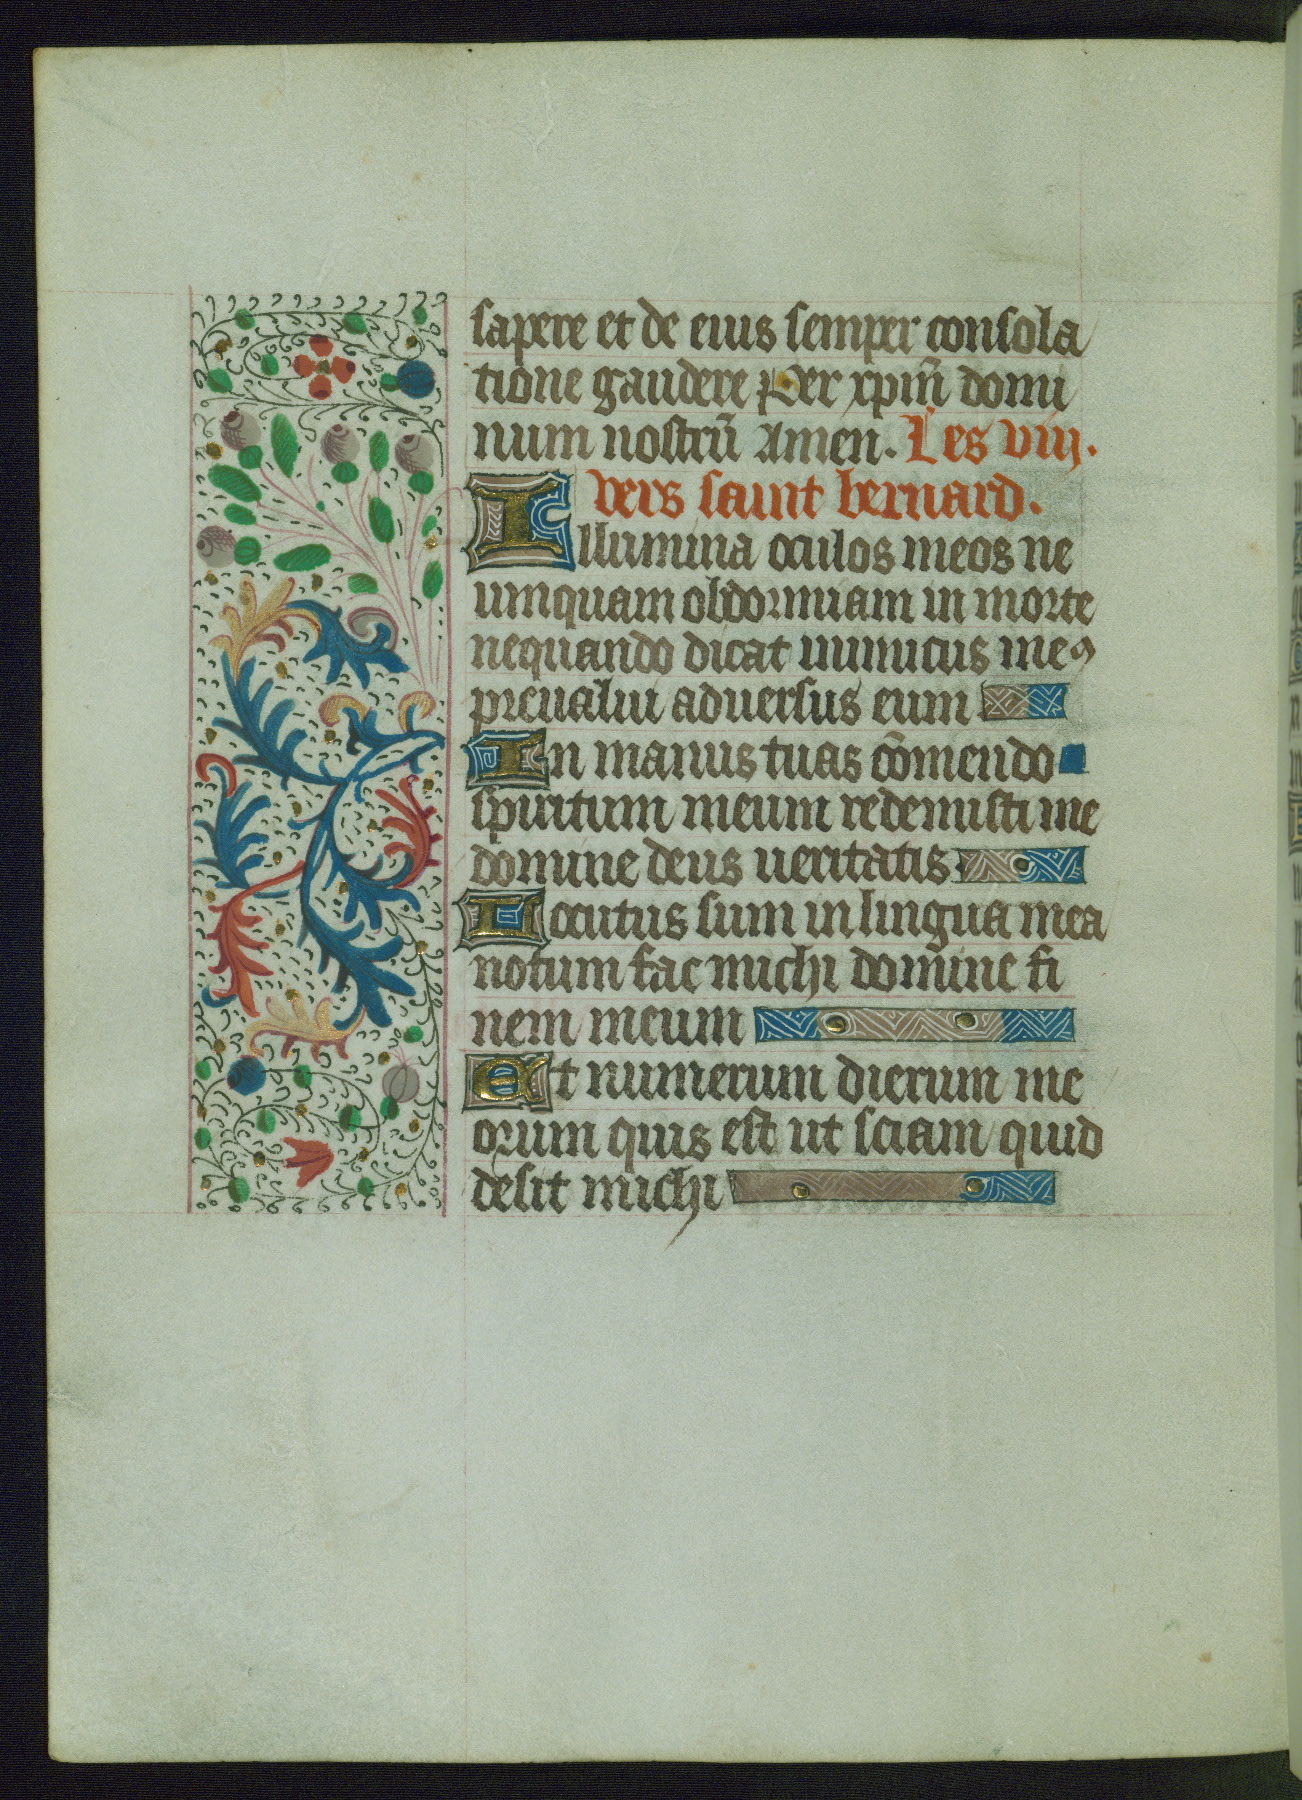 sapere et de eius semper consola
tione gaudere Per xpm̄ domi
num nostrū Amen. Les viij.
vers saint bernard.
Illumina oculos meos ne
umquam obdormiam in morte
nequando dicat inimicus meꝯ
preualui aduersus eum
In manus tuas cōmendo
spiritum meum redemisti me
domine deus ueritatis
Locutus sum in lingua mea
notum fac michi domine fi
nem meum
Et numerum dierum me
orum quis est ut sciam quid
desit michi